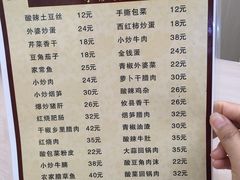 酸辣土豆丝 12元
外婆炒蛋 18元
芹菜香干 18元
豆角茄子 18元
家常鱼 25元
小炒肉 24元
小炒烟笋 30元
爆炒猪肝 26元
红烧肥肠 32元
干椒乡里腊肉 32元
红烧肉 35元
酸包菜粉皮 22元
小炒牛腩 38元
农家腊草鱼 40元
手撕包菜 12元
西红柿炒蛋 18元
小炒香干 18元
金钱蛋 20元
青椒外婆菜 22元
萝卜干腊肉 30元
酸辣鸡杂 26元
攸县香干 22元
烟笋腊肉 32元
青椒油渣 30元
酸辣牛肚 35元
大蒜回锅肉 30元
酸豆角肉沫 22元
酸菜回锅肉 32元